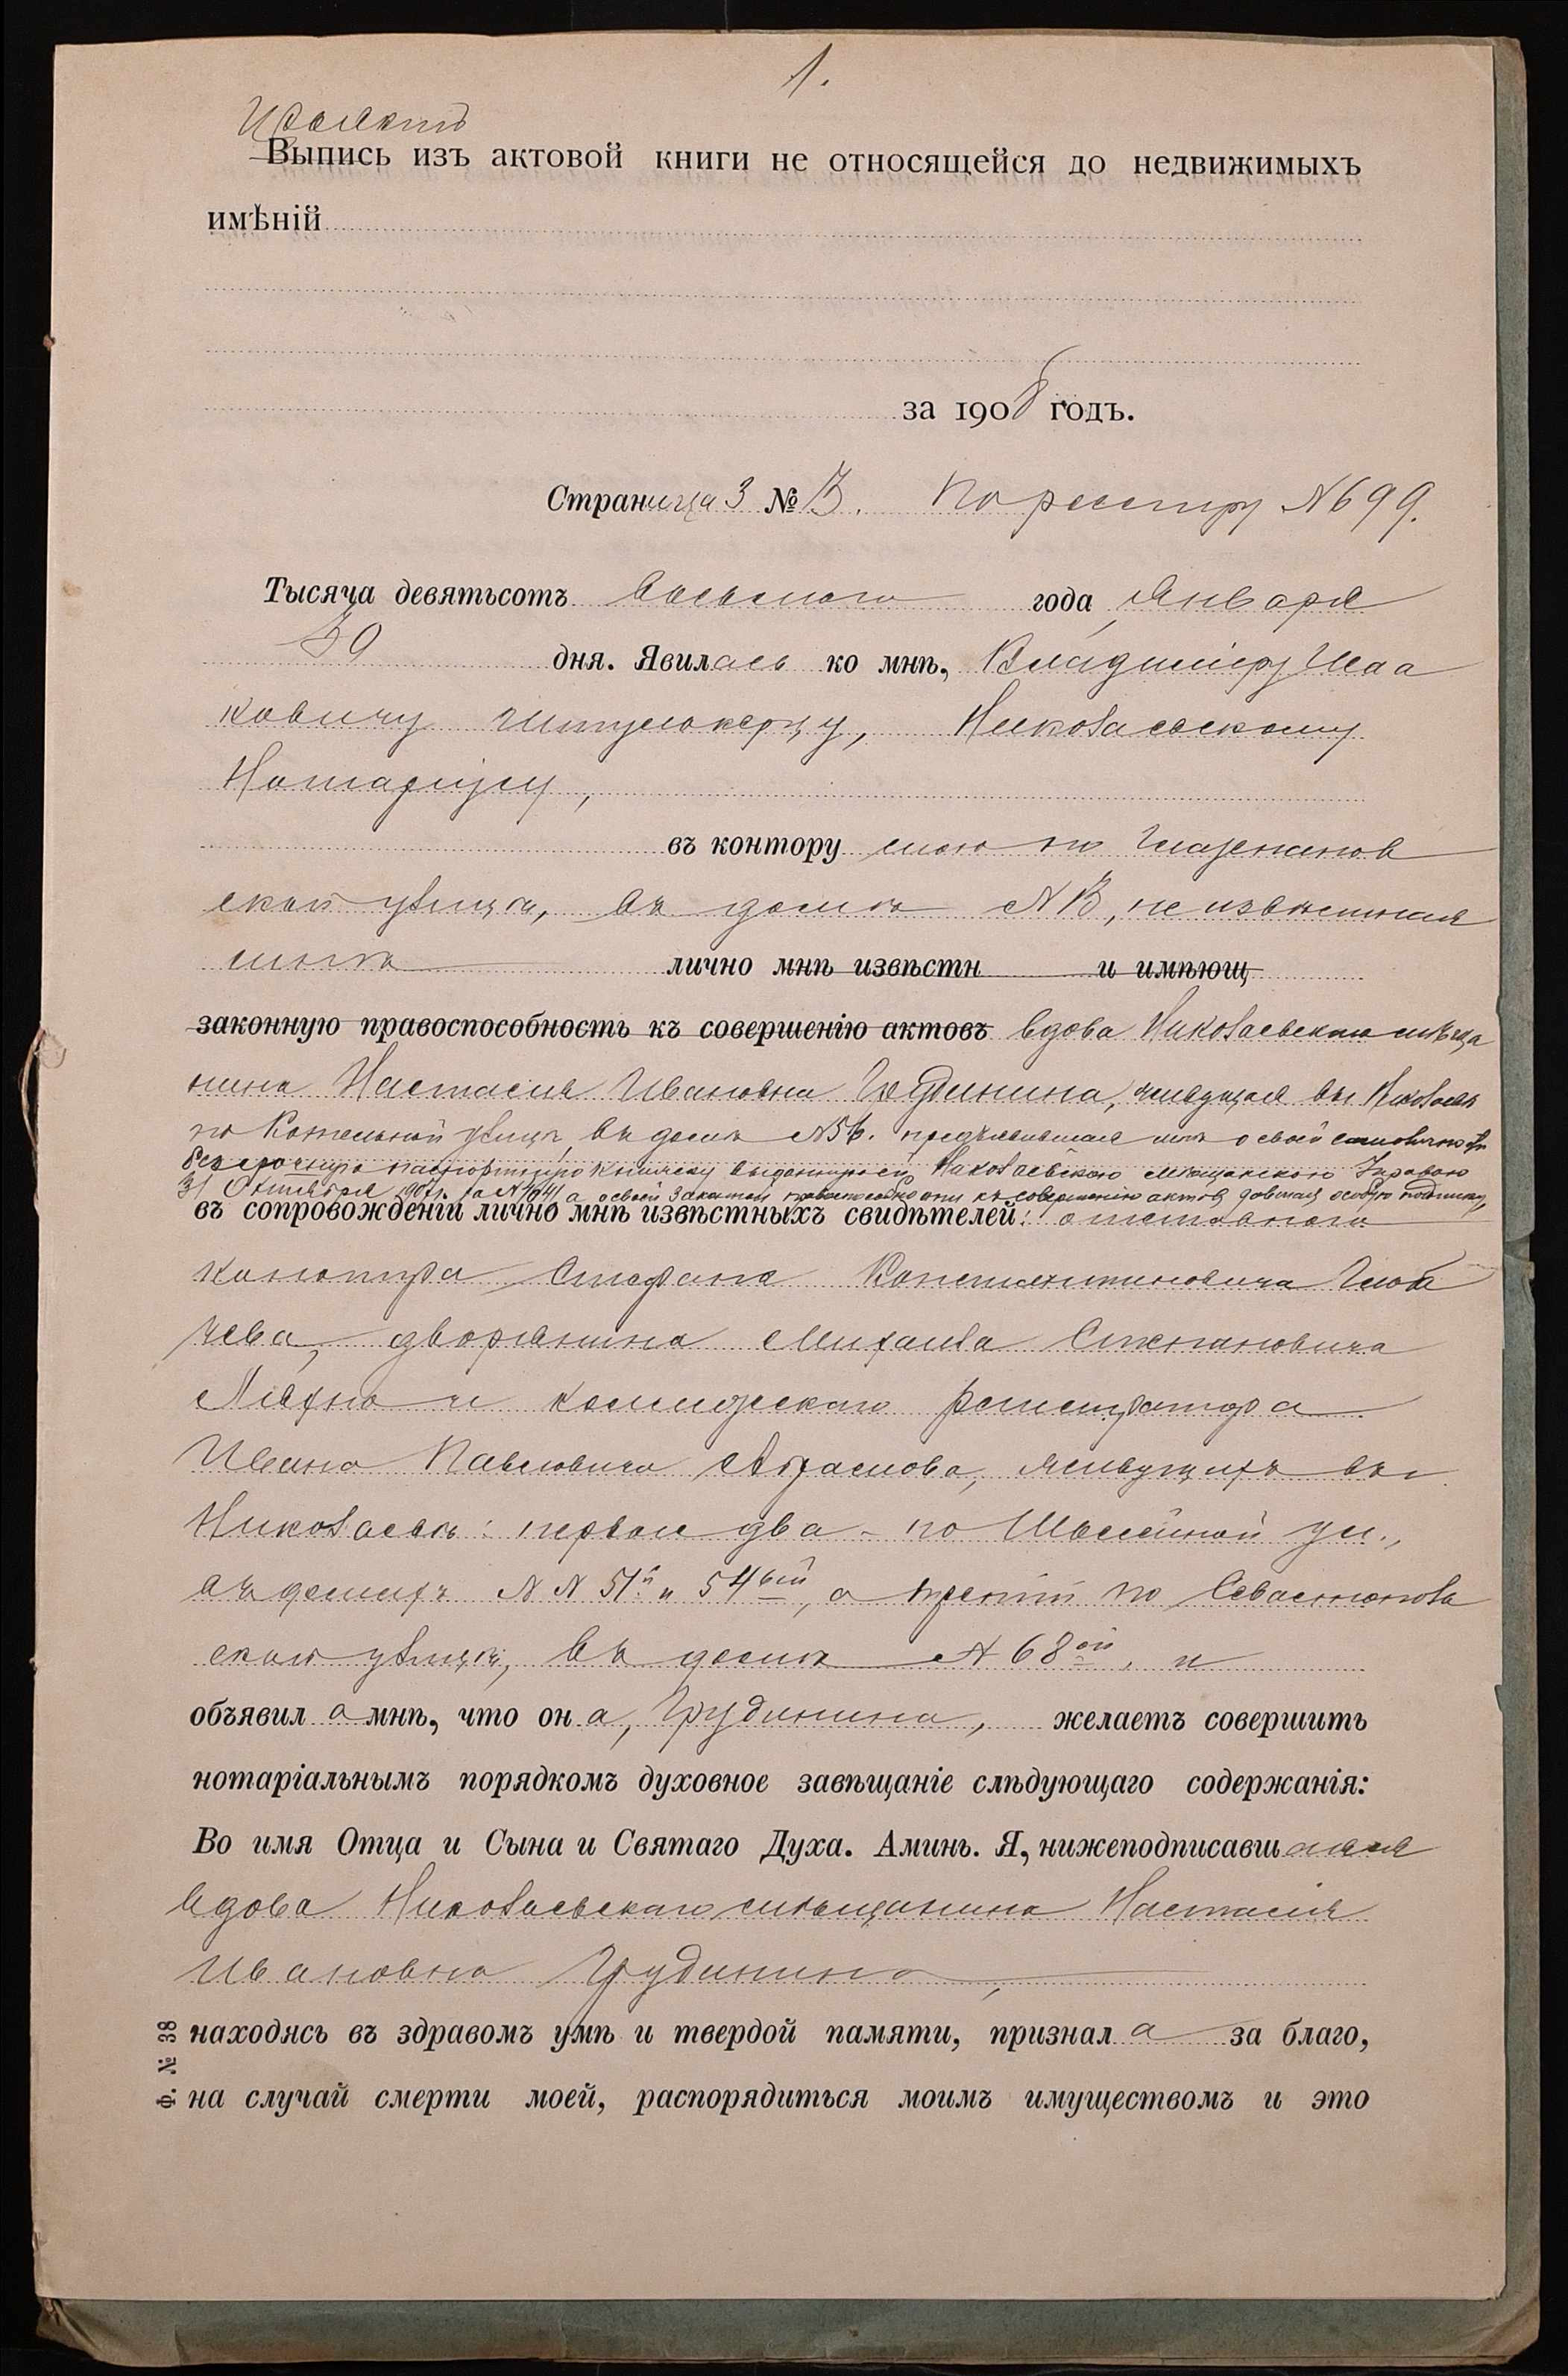 1.
Проектъ
Выпись изъ актовой книги не относящейся до недвижимыхъ
имѣній
за 1908 годъ.
Страница 3 № 3. По реестру N 699.
Тысяча девятьсотъ восьмого года Января
30 дня. Явилась ко мнѣ, Владиміру Исаа
ковичу Николаевскому
Нотаріусу,
въ контору мою по
ской улицѣ, въ домѣ N 13, неизвѣстная
мнѣ лично мнѣ извѣстн и имѣющ
законную правоспособность къ совершенію актовъ вдова Николаевскаго мѣща
нина Настасия Ивановна Грудинина, живущая въ Николаевѣ
по Котельной улицѣ, въ домѣ N 56. предъявившая мнѣ о своей самоличности
безсрочную паспортную книжку выданную ей Николаевскою мѣщанскою Управою
31 Октября 1907 г. за N а о своей законной правоспособности къ совершенію актовъ давшая особую подписку,
въ сопровожденіи лично мнѣ извѣстныхъ свидѣтелей: отставного
Стефана Константиновича
чева, дворянина Михаила Степановича
Ляхно и коллежскаго регистратора
Ивана Павловича живущихъ въ
Николаевѣ: первые два - по ул.,
въ домахъ N N 51й и 54ый, а третій по Севастополь
ской улицѣ, въ домѣ N 68ой, и
объявила мнѣ, что она, Грудинина, желаетъ совершить
нотаріальнымъ порядкомъ духовное завѣщаніе слѣдующаго содержанія:
Во имя Отца и Сына и Святаго Духа. Аминь. Я, нижеподписавшаяся
вдова Николаевскаго мѣщанина Настасия
Ивановна Грудинина,
находясь въ здравомъ умѣ и твердой памяти, признала за благо,
на случай смерти моей, распорядиться моимъ имуществомъ и это
Ф. № 38